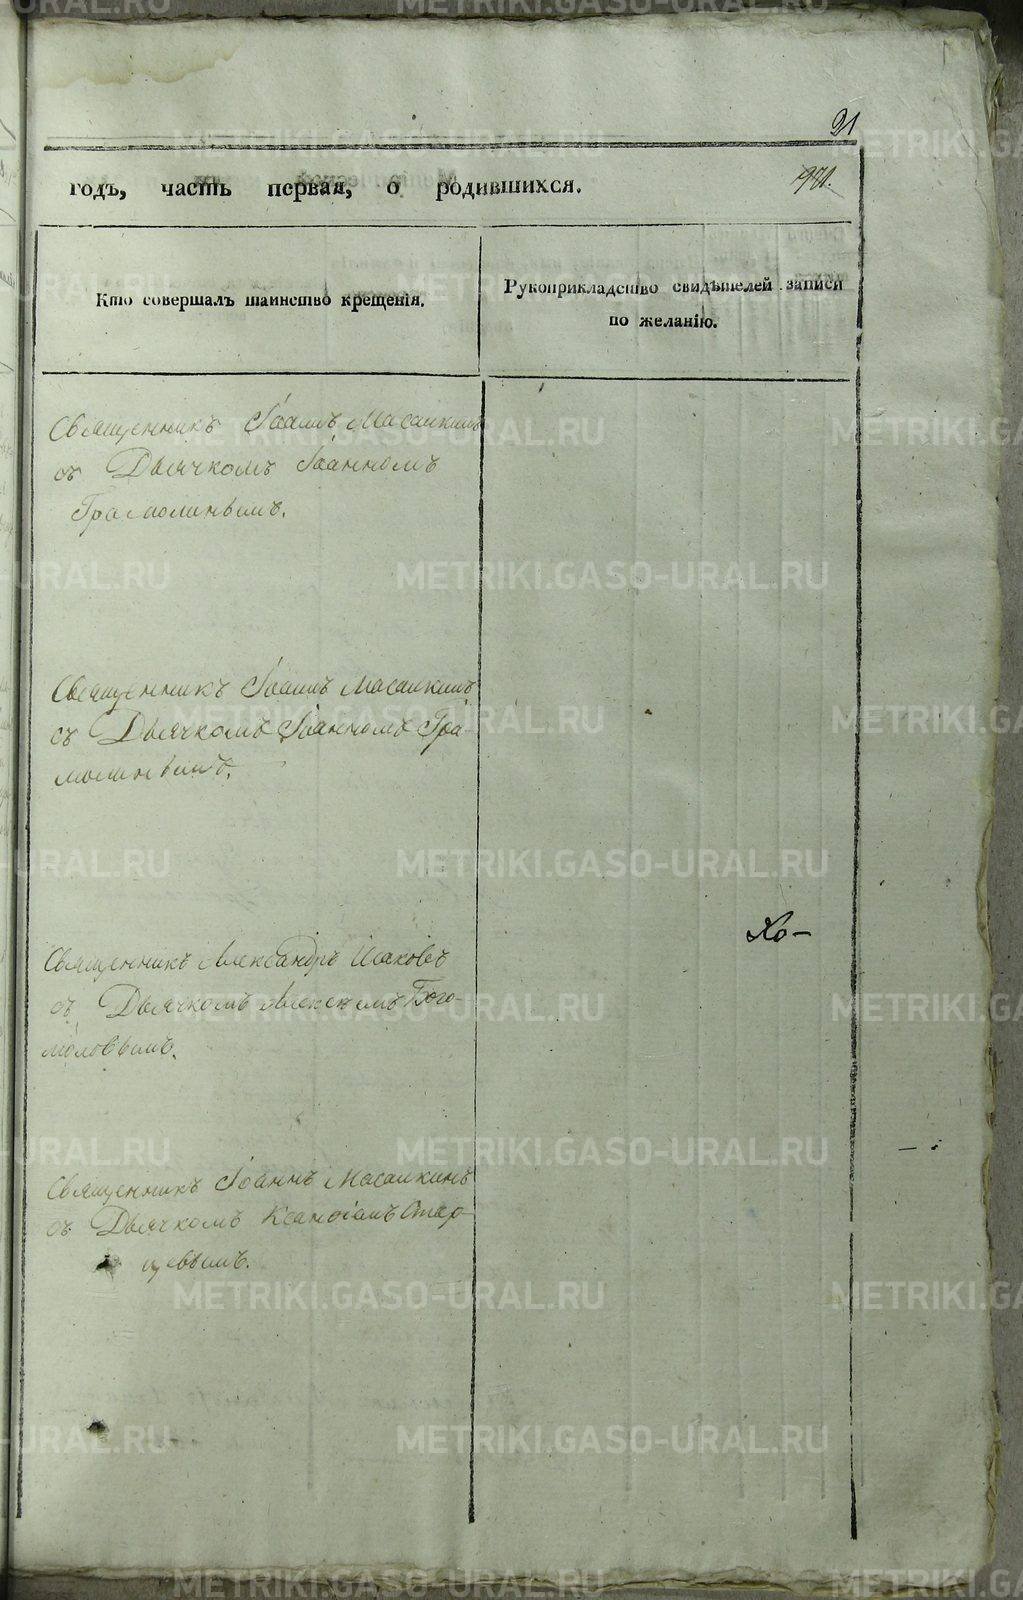 21
годъ, часть первая, о родившихся.
Кто совершалъ таинство крещенія.
Рукоприкладство свидѣтелей записи
по желанію.
Священникъ Іоаннъ Масалкинъ
съ Дьячкомъ Іоанномъ
Грамолинымъ.
Священникъ Іоаннъ Масалкинъ
съ Дьячкомъ Іоанномъ Гра-
молинымъ.
Хо-
Священникъ Александръ Исаковъ
съ Дьячкомъ Алексѣемъ Бого-
моловымъ.
Священникъ Іоаннъ Масалкинъ
съ Дьячкомъ Ксанфіемъ Стар-
цевымъ.
METRIKI.GASO-URAL.RU